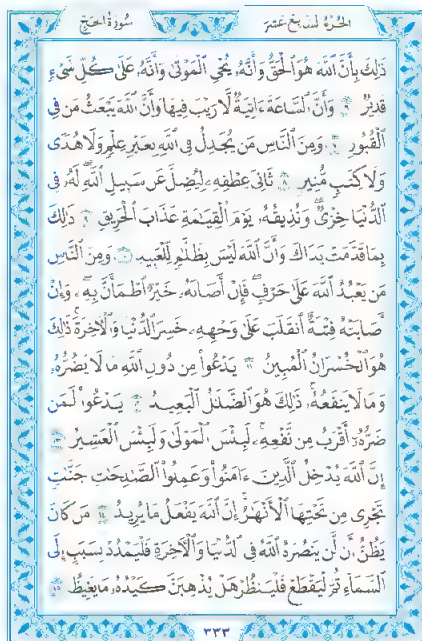 الجزء السابع عشر
سورة الحج
ذَٰلِكَ بِأَنَّ ٱللَّهَ هُوَ ٱلۡحَقُّ وَأَنَّهُۥ يُحۡيِ ٱلۡمَوۡتَىٰ وَأَنَّهُۥ عَلَىٰ كُلِّ شَيۡءٖ
قَدِيرٞ ٦ وَأَنَّ ٱلسَّاعَةَ ءَاتِيَةٞ لَّا رَيۡبَ فِيهَا وَأَنَّ ٱللَّهَ يَبۡعَثُ مَن فِي
ٱلۡقُبُورِ ٧ وَمِنَ ٱلنَّاسِ مَن يُجَٰدِلُ فِي ٱللَّهِ بِغَيۡرِ عِلۡمٖ وَلَا هُدٗى
وَلَا كِتَٰبٖ مُّنِيرٖ ٨ ثَانِيَ عِطۡفِهِۦ لِيُضِلَّ عَن سَبِيلِ ٱللَّهِۖ لَهُۥ فِي
ٱلدُّنۡيَا خِزۡيٞۖ وَنُذِيقُهُۥ يَوۡمَ ٱلۡقِيَٰمَةِ عَذَابَ ٱلۡحَرِيقِ ٩ ذَٰلِكَ
بِمَا قَدَّمَتۡ يَدَاكَ وَأَنَّ ٱللَّهَ لَيۡسَ بِظَلَّٰمٖ لِّلۡعَبِيدِ ١٠ وَمِنَ ٱلنَّاسِ
مَن يَعۡبُدُ ٱللَّهَ عَلَىٰ حَرۡفٖۖ فَإِنۡ أَصَابَهُۥ خَيۡرٌ ٱطۡمَأَنَّ بِهِۦۖ وَإِنۡ
أَصَابَتۡهُ فِتۡنَةٌ ٱنقَلَبَ عَلَىٰ وَجۡهِهِۦ خَسِرَ ٱلدُّنۡيَا وَٱلۡأٓخِرَةَۚ ذَٰلِكَ
هُوَ ٱلۡخُسۡرَانُ ٱلۡمُبِينُ ١١ يَدۡعُواْ مِن دُونِ ٱللَّهِ مَا لَا يَضُرُّهُۥ
وَمَا لَا يَنفَعُهُۥۚ ذَٰلِكَ هُوَ ٱلضَّلَٰلُ ٱلۡبَعِيدُ ١٢ يَدۡعُواْ لَمَن
ضَرُّهُۥٓ أَقۡرَبُ مِن نَّفۡعِهِۦۚ لَبِئۡسَ ٱلۡمَوۡلَىٰ وَلَبِئۡسَ ٱلۡعَشِيرُ ١٣
إِنَّ ٱللَّهَ يُدۡخِلُ ٱلَّذِينَ ءَامَنُواْ وَعَمِلُواْ ٱلصَّٰلِحَٰتِ جَنَّٰتٖ
تَجۡرِي مِن تَحۡتِهَا ٱلۡأَنۡهَٰرُۚ إِنَّ ٱللَّهَ يَفۡعَلُ مَا يُرِيدُ ١٤ مَن كَانَ
يَظُنُّ أَن لَّن يَنصُرَهُ ٱللَّهُ فِي ٱلدُّنۡيَا وَٱلۡأٓخِرَةِ فَلۡيَمۡدُدۡ بِسَبَبٍ إِلَى
ٱلسَّمَآءِ ثُمَّ لۡيَقۡطَعۡ فَلۡيَنظُرۡ هَلۡ يُذۡهِبَنَّ كَيۡدُهُۥ مَا يَغِيظُ ١٥
٣٣٣